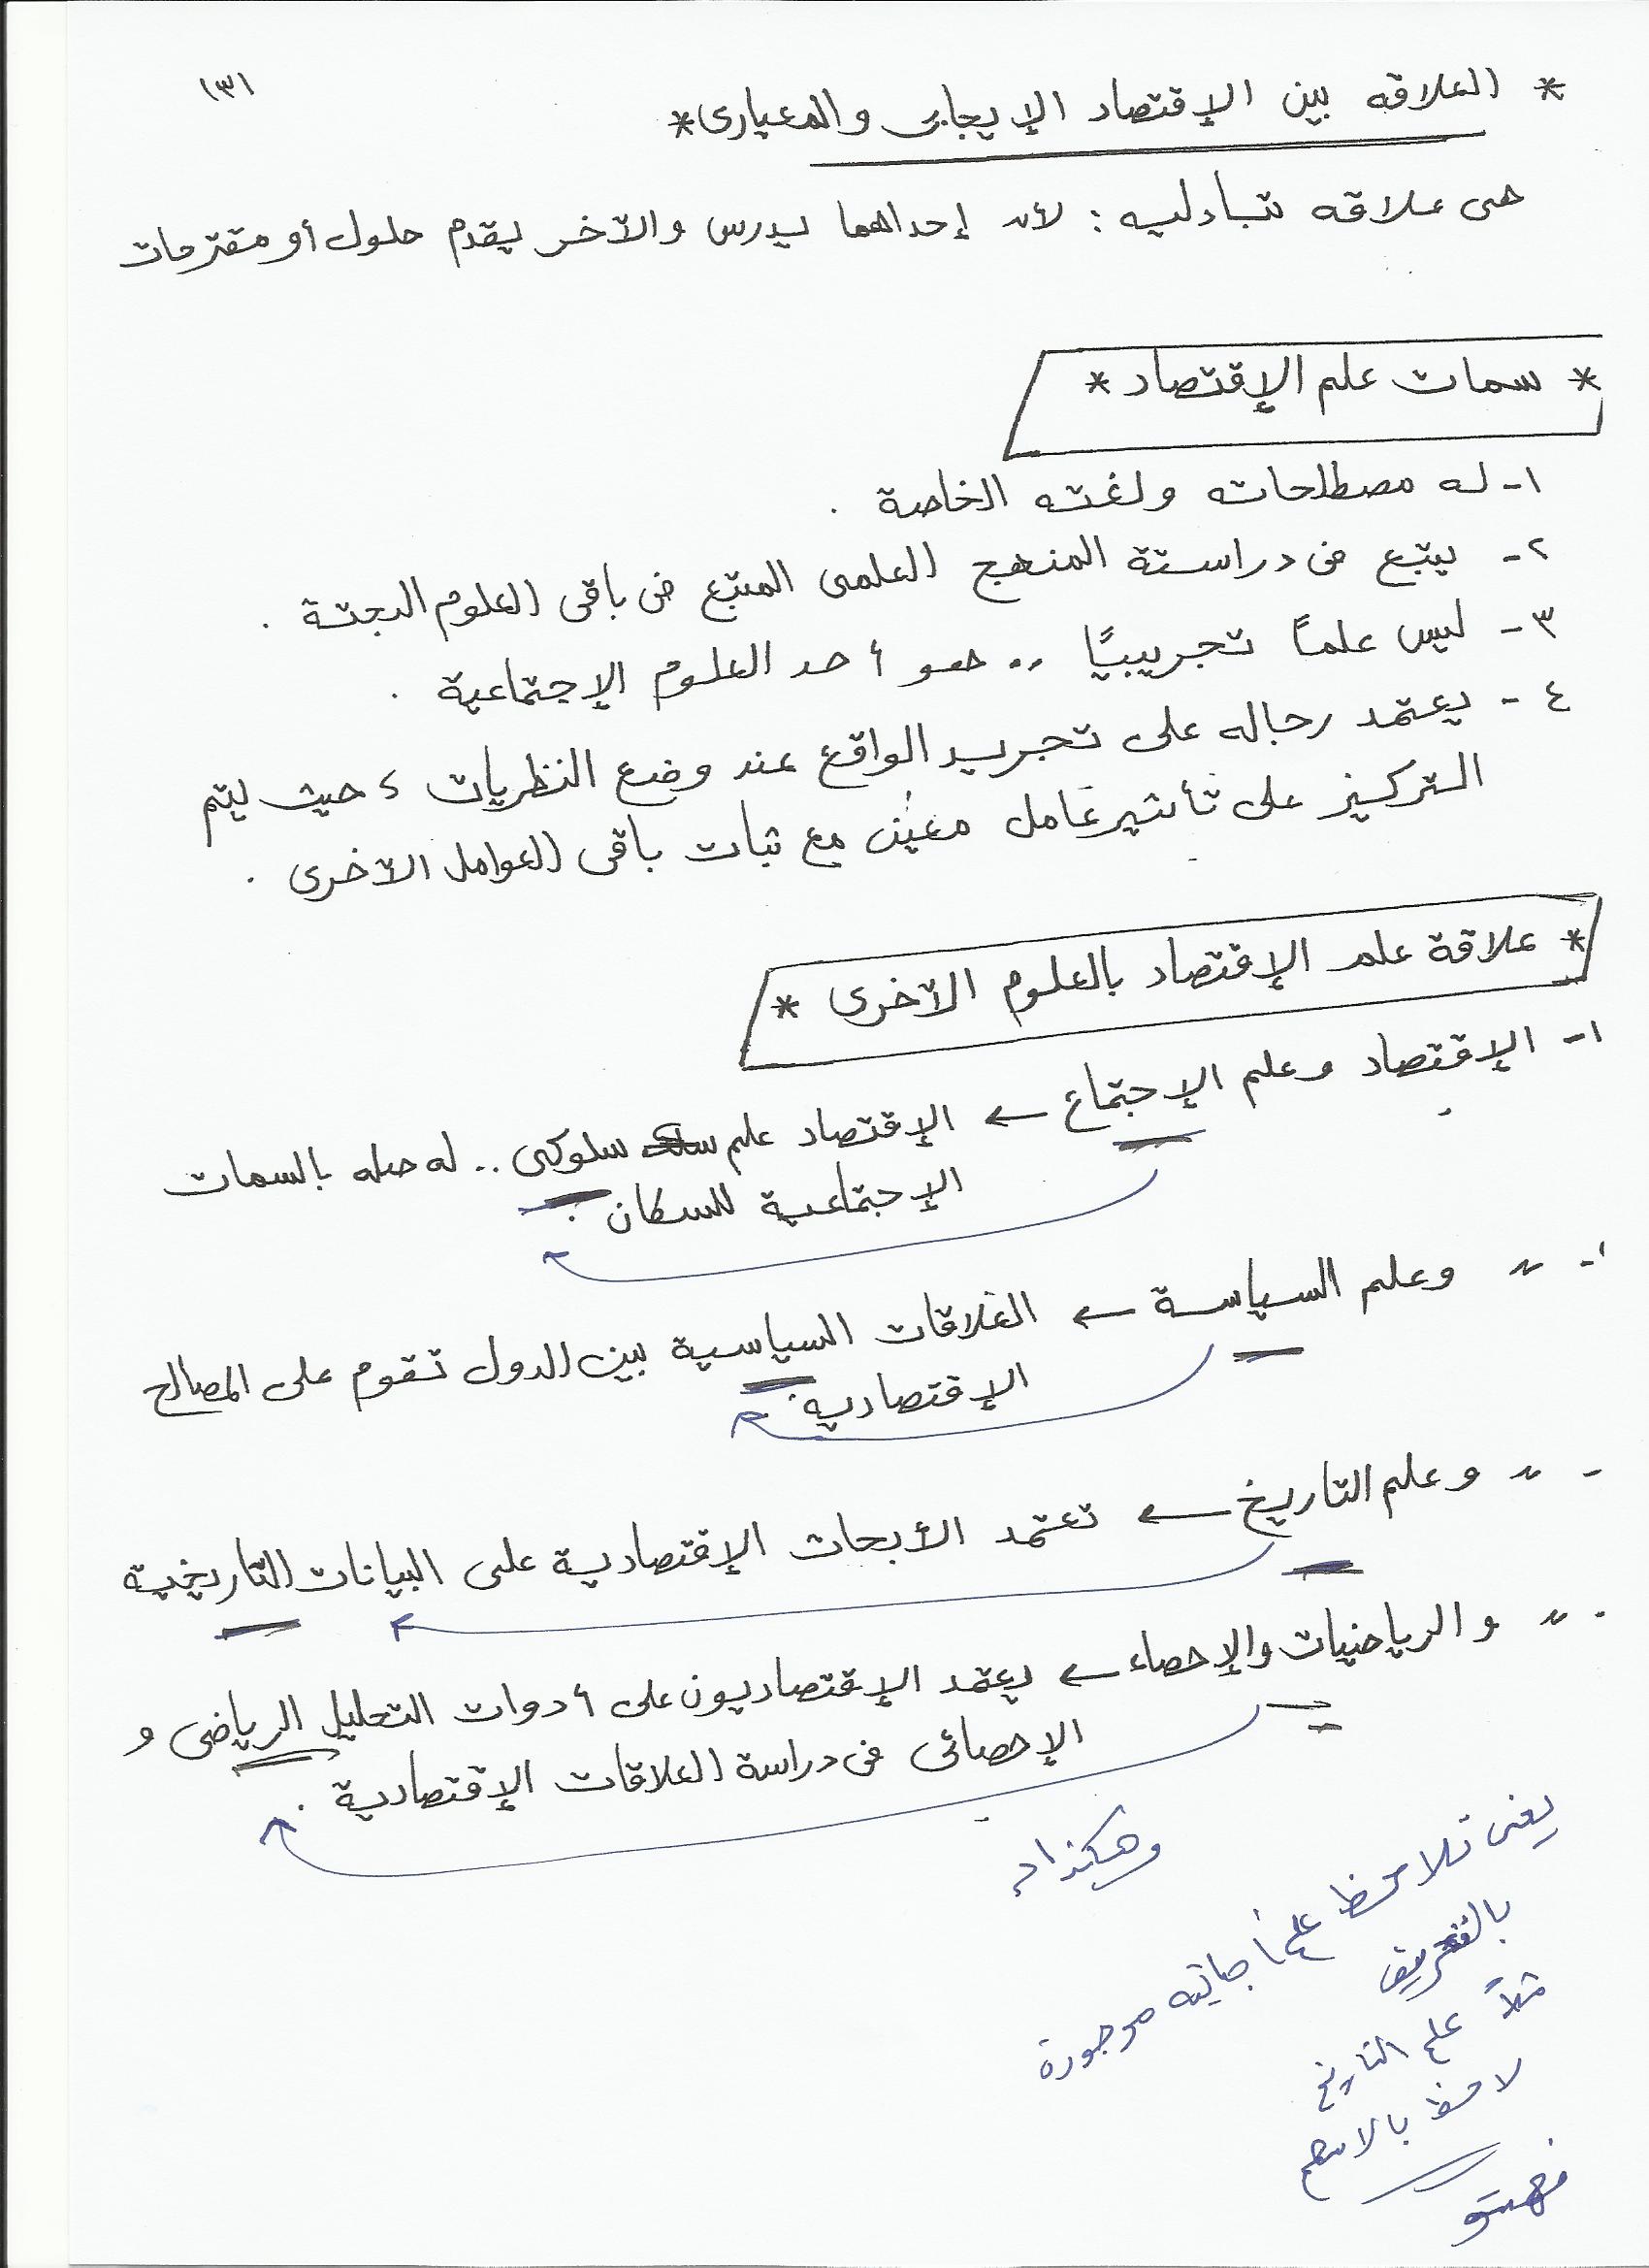 (٣)
* العلاقه بين الإقتصاد الإيجابى والمعيارى *
هى علاقه تبادليه : لأن إحداهما يدرس والآخر يقدم حلول أو مقترحات
* سمات علم الإقتصاد *
١- له مصطلحاته ولغته الخاصة .
٢- يتبع فى دراستة المنهج العلمى المتبع فى باقى العلوم البحتة .
٣- ليس علماً تجريبيًا .. هو أحد العلوم الإجتماعية .
٤- يعتمد رجاله على تجريد الواقع عند وضع النظريات ، حيث يتم
التركيز على تأثير عامل معين مع ثبات باقى العوامل الآخرى .
* علاقة علم الإقتصاد بالعلوم الآخرى *
١- الإقتصاد وعلم الإجتماع ← الإقتصاد علم سلوكى .. له صله بالسمات
الإجتماعية للسكان .
- 〃 وعلم السياسة ← العلاقات السياسية بين الدول تقوم على المصالح
الإقتصاديه .
- 〃 وعلم التاريخ ← تعتمد الأبحاث الإقتصادية على البيانات التاريخية
- 〃 والرياضيات والإحصاء ← يعتمد الإقتصاديون على أدوات التحليل الرياضى و
الإحصائى فى دراسة العلاقات الإقتصادية .
وهكذا
يعنى تلاحظ اجابته موجودة
بالتعريف
مثلاً علم التاريخ
لاحظ بالاسهم
فهمتو